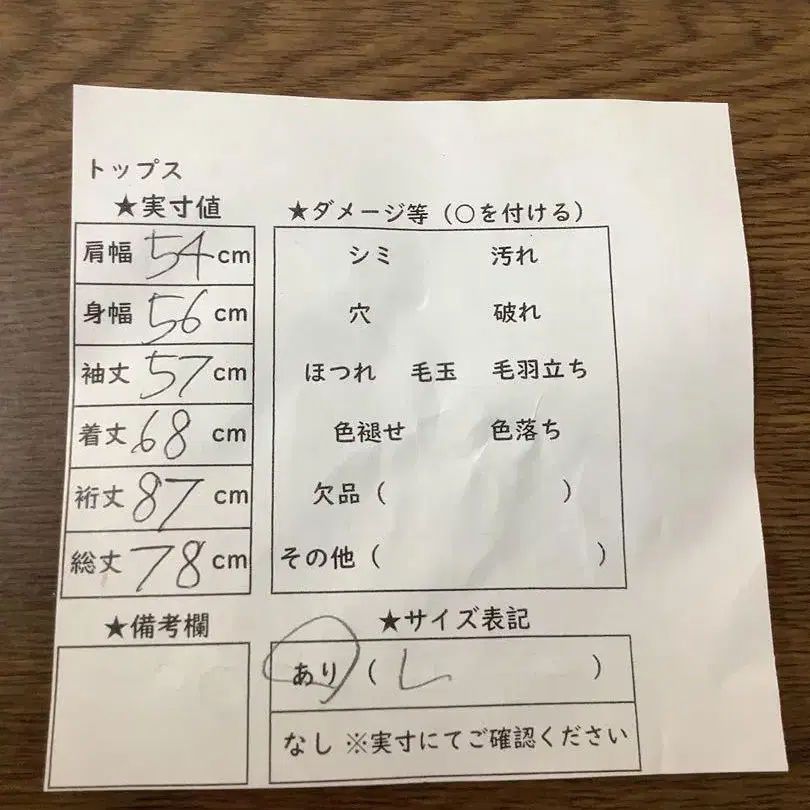 トップス
★実寸値
肩幅 54 cm
身幅 56 cm
袖丈 57 cm
着丈 68 cm
裄丈 87 cm
総丈 78 cm
★備考欄
★ダメージ等（○を付ける）
シミ 汚れ
穴 破れ
ほつれ 毛玉 毛羽立ち
色褪せ 色落ち
欠品（ ）
その他（ ）
★サイズ表記
あり（ L ）
なし ※実寸にてご確認ください